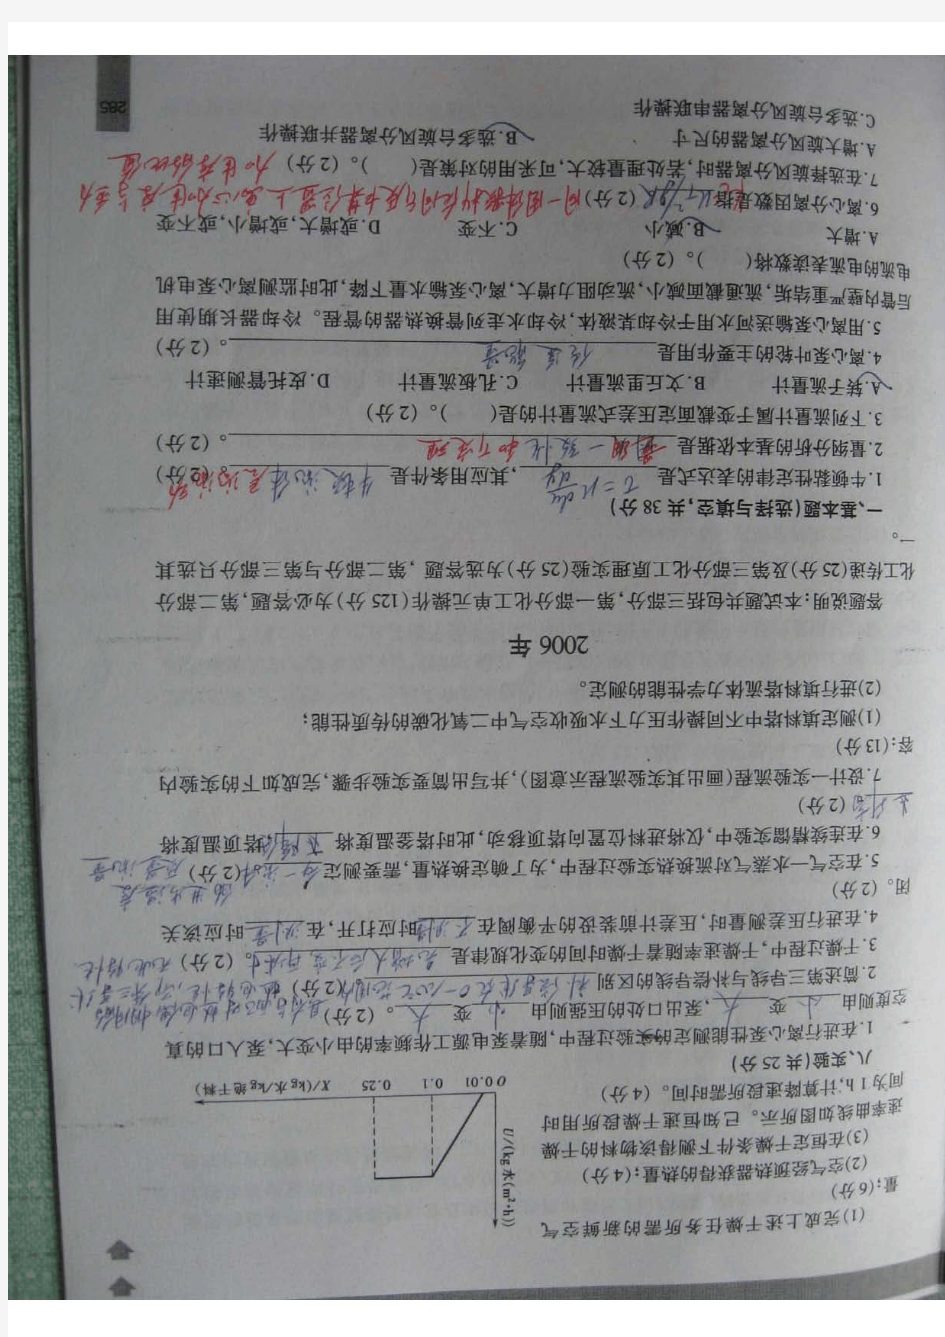 (1)完成上述干燥任务所需的新鲜空气
量;(6分)
(2)空气经预热器获得的热量;(4分)
(3)在恒定干燥条件下测得该物料的干燥
速率曲线如图所示。已知恒速干燥段所用时
间为1 h,计算降速段所需时间。(4分)
U/(kg水/(m²·h))
O 0.01 0.1 0.25 X/(kg水/kg绝干料)
八、实验(共25分)
1.在进行离心泵性能测定的实验过程中,随着泵电源工作频率的由小变大,泵入口的真
空度则由 小 变 大 ,泵出口处的压强则由 小 变 大 。(2分)
2.简述第三导线与补偿导线的区别 (2分)
3.干燥过程中,干燥速率随着干燥时间的变化规律是 。(2分)
4.在进行压差测量时,压差计前装设的平衡阀在 不测量 时应打开,在 测量 时应该关
闭。(2分)
5.在空气—水蒸气对流换热实验过程中,为了确定换热量,需要测定 (2分)
6.在连续精馏实验中,仅将进料位置向塔顶移动,此时塔釜温度将 下降 ,塔顶温度将
上升 (2分)
7.设计一实验流程(画出其实验流程示意图),并写出简要实验步骤,完成如下的实验内
容:(13分)
(1)测定填料塔中不同操作压力下水吸收空气中二氧化碳的传质性能;
(2)进行填料塔流体力学性能的测定。
2006年
答题说明:本试题共包括三部分,第一部分化工单元操作(125分)为必答题,第二部分
化工传递(25分)及第三部分化工原理实验(25分)为选答题,第二部分与第三部分只选其
一。
一、基本题(选择与填空,共38分)
1.牛顿黏性定律的表达式是 τ=μ du/dy ,其应用条件是 牛顿流体 层流流动 。(2分)
2.量纲分析的基本依据是 量纲一致性 和π定理 。(2分)
3.下列流量计属于变截面定压差式流量计的是( )。(2分)
A.转子流量计 B.文丘里流量计 C.孔板流量计 D.皮托管测速计
4.离心泵叶轮的主要作用是 传递能量 。(2分)
5.用离心泵输送河水用于冷却某液体,冷却水走列管换热器的管程。冷却器长期使用
后管内壁严重结垢,流通截面减小,流动阻力增大,离心泵输水量下降,此时监测离心泵电机
电流的电流表读数将( )。(2分)
A.增大 B.减小 C.不变 D.或增大,或增小,或不变
6.离心分离因数是指 (2分)
7.在选择旋风分离器时,若处理量较大,可采用的对策是( )。(2分)
A.增大旋风分离器的尺寸 B.选多台旋风分离器并联操作
C.选多台旋风分离器串联操作
285